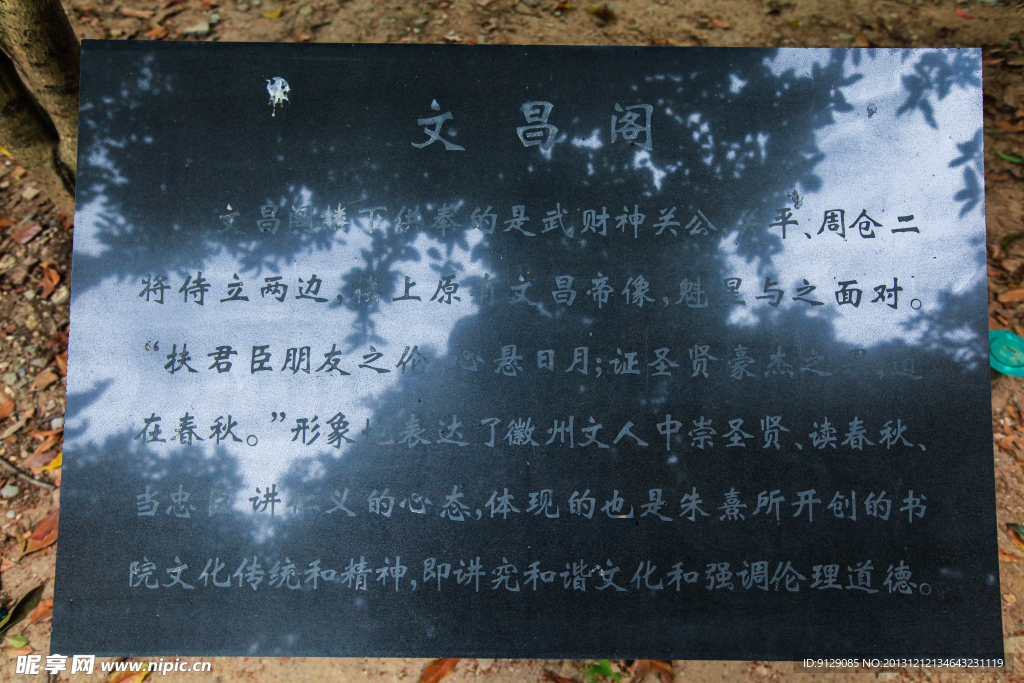 文昌阁
文昌阁楼下供奉的是武财神关公,关平、周仓二
将侍立两边,楼上原有文昌帝像,魁星与之面对。
“扶君臣朋友之伦,心悬日月;证圣贤豪杰之果,道
在春秋。”形象地表达了徽州文人中崇圣贤、读春秋、
当忠臣讲仁义的心态,体现的也是朱熹所开创的书
院文化传统和精神,即讲究和谐文化和强调伦理道德。
昵享网 www.nipic.cn
ID:9129085 NO:20131212134643231119